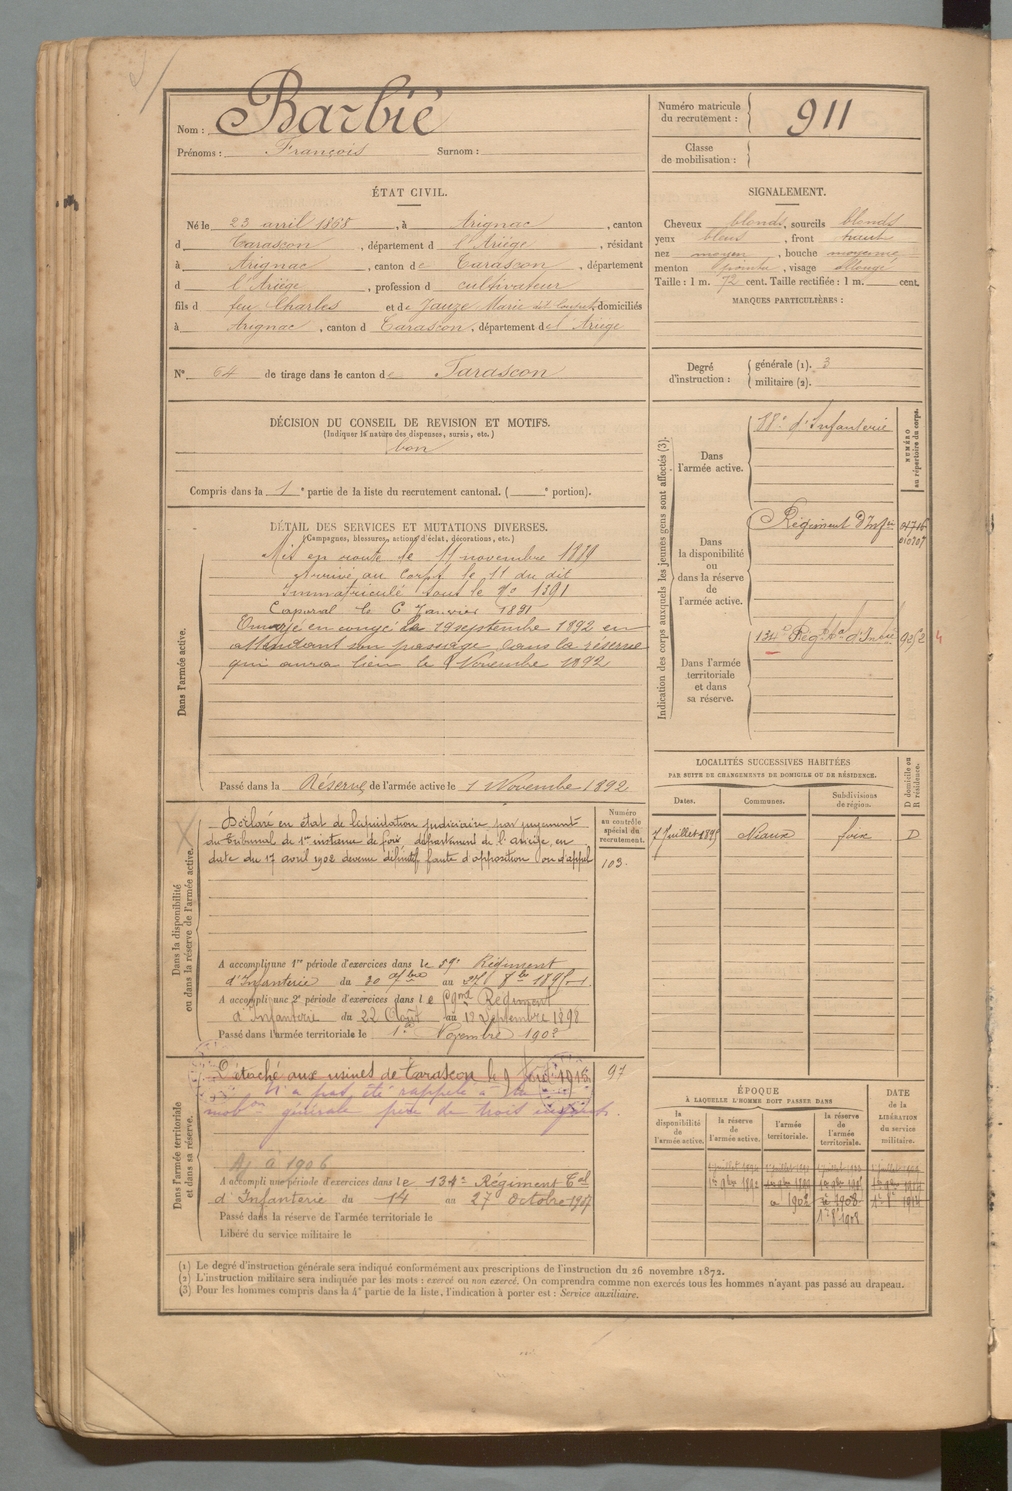 Nom : Barbié
Prénoms : François Surnom :
Numéro matricule du recrutement : 911
Classe de mobilisation :
ÉTAT CIVIL.
Né le 23 avril 1868, à Arignac, canton
d Tarascon, département d l'Ariège, résidant
à Arignac, canton de Tarascon, département
d l'Ariège, profession d cultivateur
fils d feu Charles et de Jauze Marie domiciliés
à Arignac, canton d Tarascon, département de l'Ariège
N° 64 de tirage dans le canton de Tarascon
SIGNALEMENT.
Cheveux blonds, sourcils blonds
yeux bleus, front
nez moyen, bouche moyenne
menton pointu, visage allongé
Taille : 1 m. 72 cent. Taille rectifiée : 1 m. cent.
MARQUES PARTICULIÈRES :
Degré d'instruction :
générale (1). 3
militaire (2).
DÉCISION DU CONSEIL DE REVISION ET MOTIFS.
(Indiquer la nature des dispenses, sursis, etc.)
bon
Compris dans la 1e partie de la liste du recrutement cantonal. ( e portion).
DÉTAIL DES SERVICES ET MUTATIONS DIVERSES.
(Campagnes, blessures, actions d'éclat, décorations, etc.)
Dans l'armée active.
Mis en route le 11 novembre 1889
Arrivé au Corps le 11 du dit
Immatriculé sous le N° 1391
Caporal le 6 Janvier 1891
Envoyé en congé le 19 septembre 1892 en
attendant son passage dans la réserve
qui aura lieu le 1 Novembre 1892
Passé dans la Réserve de l'armée active le 1 Novembre 1892
Indication des corps auxquels les jeunes gens sont affectés (3).
NUMÉRO au répertoire du corps.
Dans l'armée active.
88e d'Infanterie
Dans la disponibilité ou dans la réserve de l'armée active.
Régiment d'Inf.ie
Dans l'armée territoriale et dans sa réserve.
134e Régt d'Infie
LOCALITÉS SUCCESSIVES HABITÉES
PAR SUITE DE CHANGEMENTS DE DOMICILE OU DE RÉSIDENCE.
D domicile ou R résidence.
Dates. Communes. Subdivisions de région.
7 Juillet Niaux foix D
Dans la disponibilité ou dans la réserve de l'armée active.
Numéro au contrôle spécial du recrutement.
103
Déclaré en état de liquidation judiciaire par jugement
du Tribunal de 1re instance de foix département de l'ariège, en
date du 17 avril 1902 devenu définitif faute d'opposition ou d'appel
A accompli une 1re période d'exercices dans le 59e Régiment
d'Infanterie du 30 au
A accompli une 2e période d'exercices dans le Régiment
d'Infanterie du 22 Août au 18 Septembre 1898
Passé dans l'armée territoriale le 1er Novembre 1902
Dans l'armée territoriale et dans sa réserve.
Détaché aux usines de Tarascon le 9 97
N'a pas été rappelé à la
mobon générale père de trois enfants.
Aj à 1906
A accompli une période d'exercices dans le 134e Régiment Tal
d'Infanterie du 14 au 27 Octobre 1907
Passé dans la réserve de l'armée territoriale le
Libéré du service militaire le
ÉPOQUE
À LAQUELLE L'HOMME DOIT PASSER DANS
la disponibilité de l'armée active.
la réserve de l'armée active.
l'armée territoriale.
la réserve de l'armée territoriale.
DATE de la LIBÉRATION du service militaire.
1902 1908
(1) Le degré d'instruction générale sera indiqué conformément aux prescriptions de l'instruction du 26 novembre 1872.
(2) L'instruction militaire sera indiquée par les mots : exercé ou non exercé. On comprendra comme non exercés tous les hommes n'ayant pas passé au drapeau.
(3) Pour les hommes compris dans la 4e partie de la liste, l'indication à porter est : Service auxiliaire.